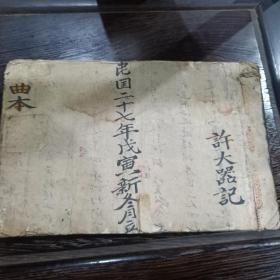 許大器記
民国二十七年戊寅新冬月立
曲本